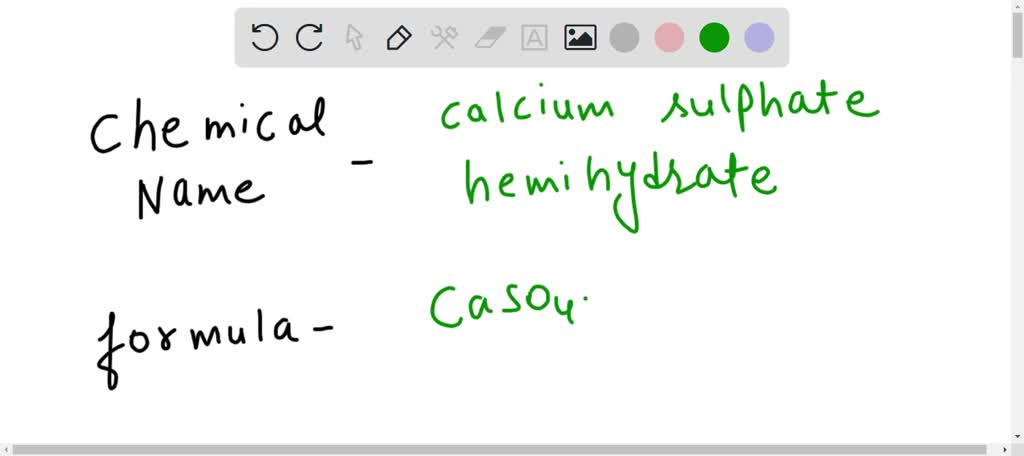 Chemical
Name -
calcium sulphate
hemihydrate
formula -
CaSO4.